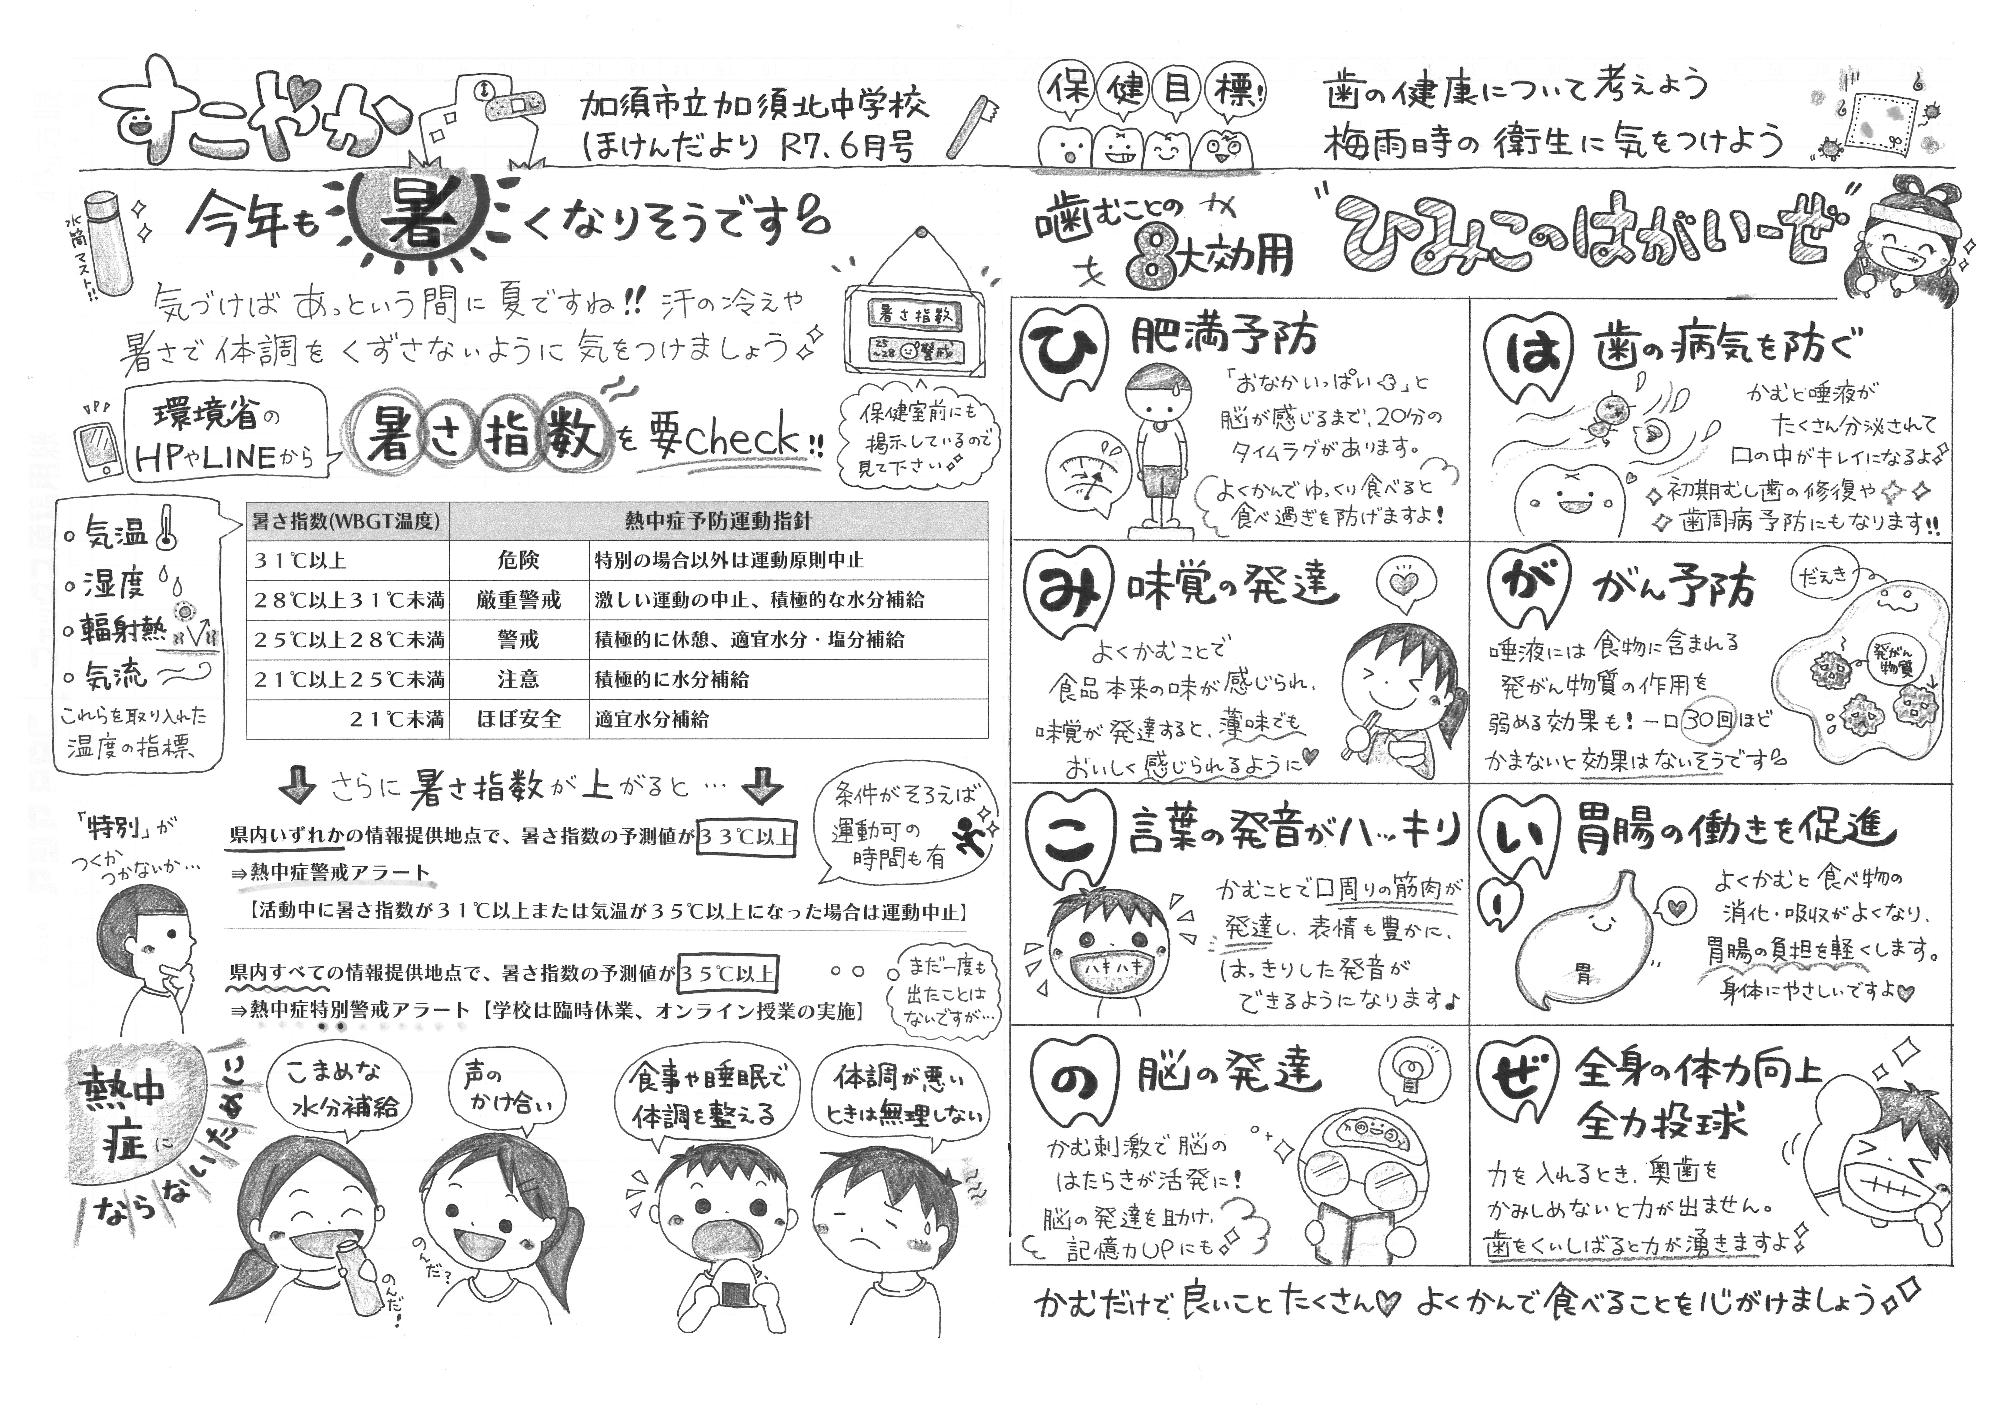 すこやか
加須市立加須北中学校
ほけんだより R7.6月号
保健目標!
歯の健康について考えよう
梅雨時の衛生に気をつけよう
水筒マスト!!
今年も暑くなりそうです
気づけばあっという間に夏ですね!! 汗の冷えや
暑さで体調をくずさないように気をつけましょう
暑さ指数
25~28 警戒
環境省の
HPやLINEから
暑さ指数を要check!!
保健室前にも
掲示しているので
見て下さい
。気温
。湿度
。輻射熱
。気流
これらを取り入れた
温度の指標
暑さ指数(WBGT温度) 熱中症予防運動指針
31℃以上 危険 特別の場合以外は運動原則中止
28℃以上31℃未満 厳重警戒 激しい運動の中止、積極的な水分補給
25℃以上28℃未満 警戒 積極的に休憩、適宜水分・塩分補給
21℃以上25℃未満 注意 積極的に水分補給
21℃未満 ほぼ安全 適宜水分補給
さらに暑さ指数が上がると…
条件がそろえば
運動可の
時間も有
「特別」が
つくか
つかないか…
県内いずれかの情報提供地点で、暑さ指数の予測値が33℃以上
⇒熱中症警戒アラート
【活動中に暑さ指数が31℃以上または気温が35℃以上になった場合は運動中止】
県内すべての情報提供地点で、暑さ指数の予測値が35℃以上
⇒熱中症特別警戒アラート【学校は臨時休業、オンライン授業の実施】
まだ一度も
出たことは
ないですが…
熱中症にならないために
こまめな
水分補給
のんだ!
声の
かけ合い
のんだ?
食事や睡眠で
体調を整える
体調が悪い
ときは無理しない
噛むことの
8大効用
"ひみこのはがいーぜ"
ひ 肥満予防
「おなかいっぱい」と
脳が感じるまで、20分の
タイムラグがあります。
よくかんでゆっくり食べると
食べ過ぎを防げますよ!
は 歯の病気を防ぐ
かむと唾液が
たくさん分泌されて
口の中がキレイになるよ
初期むし歯の修復や
歯周病予防にもなります!!
み 味覚の発達
よくかむことで
食品本来の味が感じられ、
味覚が発達すると、薄味でも
おいしく感じられるように
が がん予防
だえき
発がん物質
唾液には食物に含まれる
発がん物質の作用を
弱める効果も!一口30回ほど
かまないと効果はないそうです
こ 言葉の発音がハッキリ
かむことで口周りの筋肉が
発達し、表情も豊かに、
はっきりした発音が
できるようになります♪
ハキハキ
いー 胃腸の働きを促進
よくかむと食べ物の
消化・吸収がよくなり、
胃腸の負担を軽くします。
身体にやさしいですよ♡
胃
の 脳の発達
かむ刺激で脳の
はたらきが活発に!
脳の発達を助け、
記憶力UPにも
ぜ 全身の体力向上
全力投球
力を入れるとき、奥歯を
かみしめないと力が出ません。
歯をくいしばると力が湧きますよ
かむだけで良いことたくさん♡ よくかんで食べることを心がけましょう